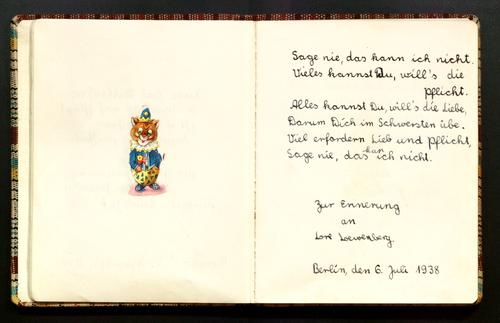 Sage nie, das kann ich nicht.
Vieles kannst Du, will's die
Pflicht.
Alles kannst Du, will's die Liebe,
Darum Dich im Schwersten übe.
Viel erfordern Lieb und Pflicht,
Sage nie, das kan ich nicht.
Zur Ennerung
an
Lore Loewenberg.
Berlin, den 6. Juli 1938